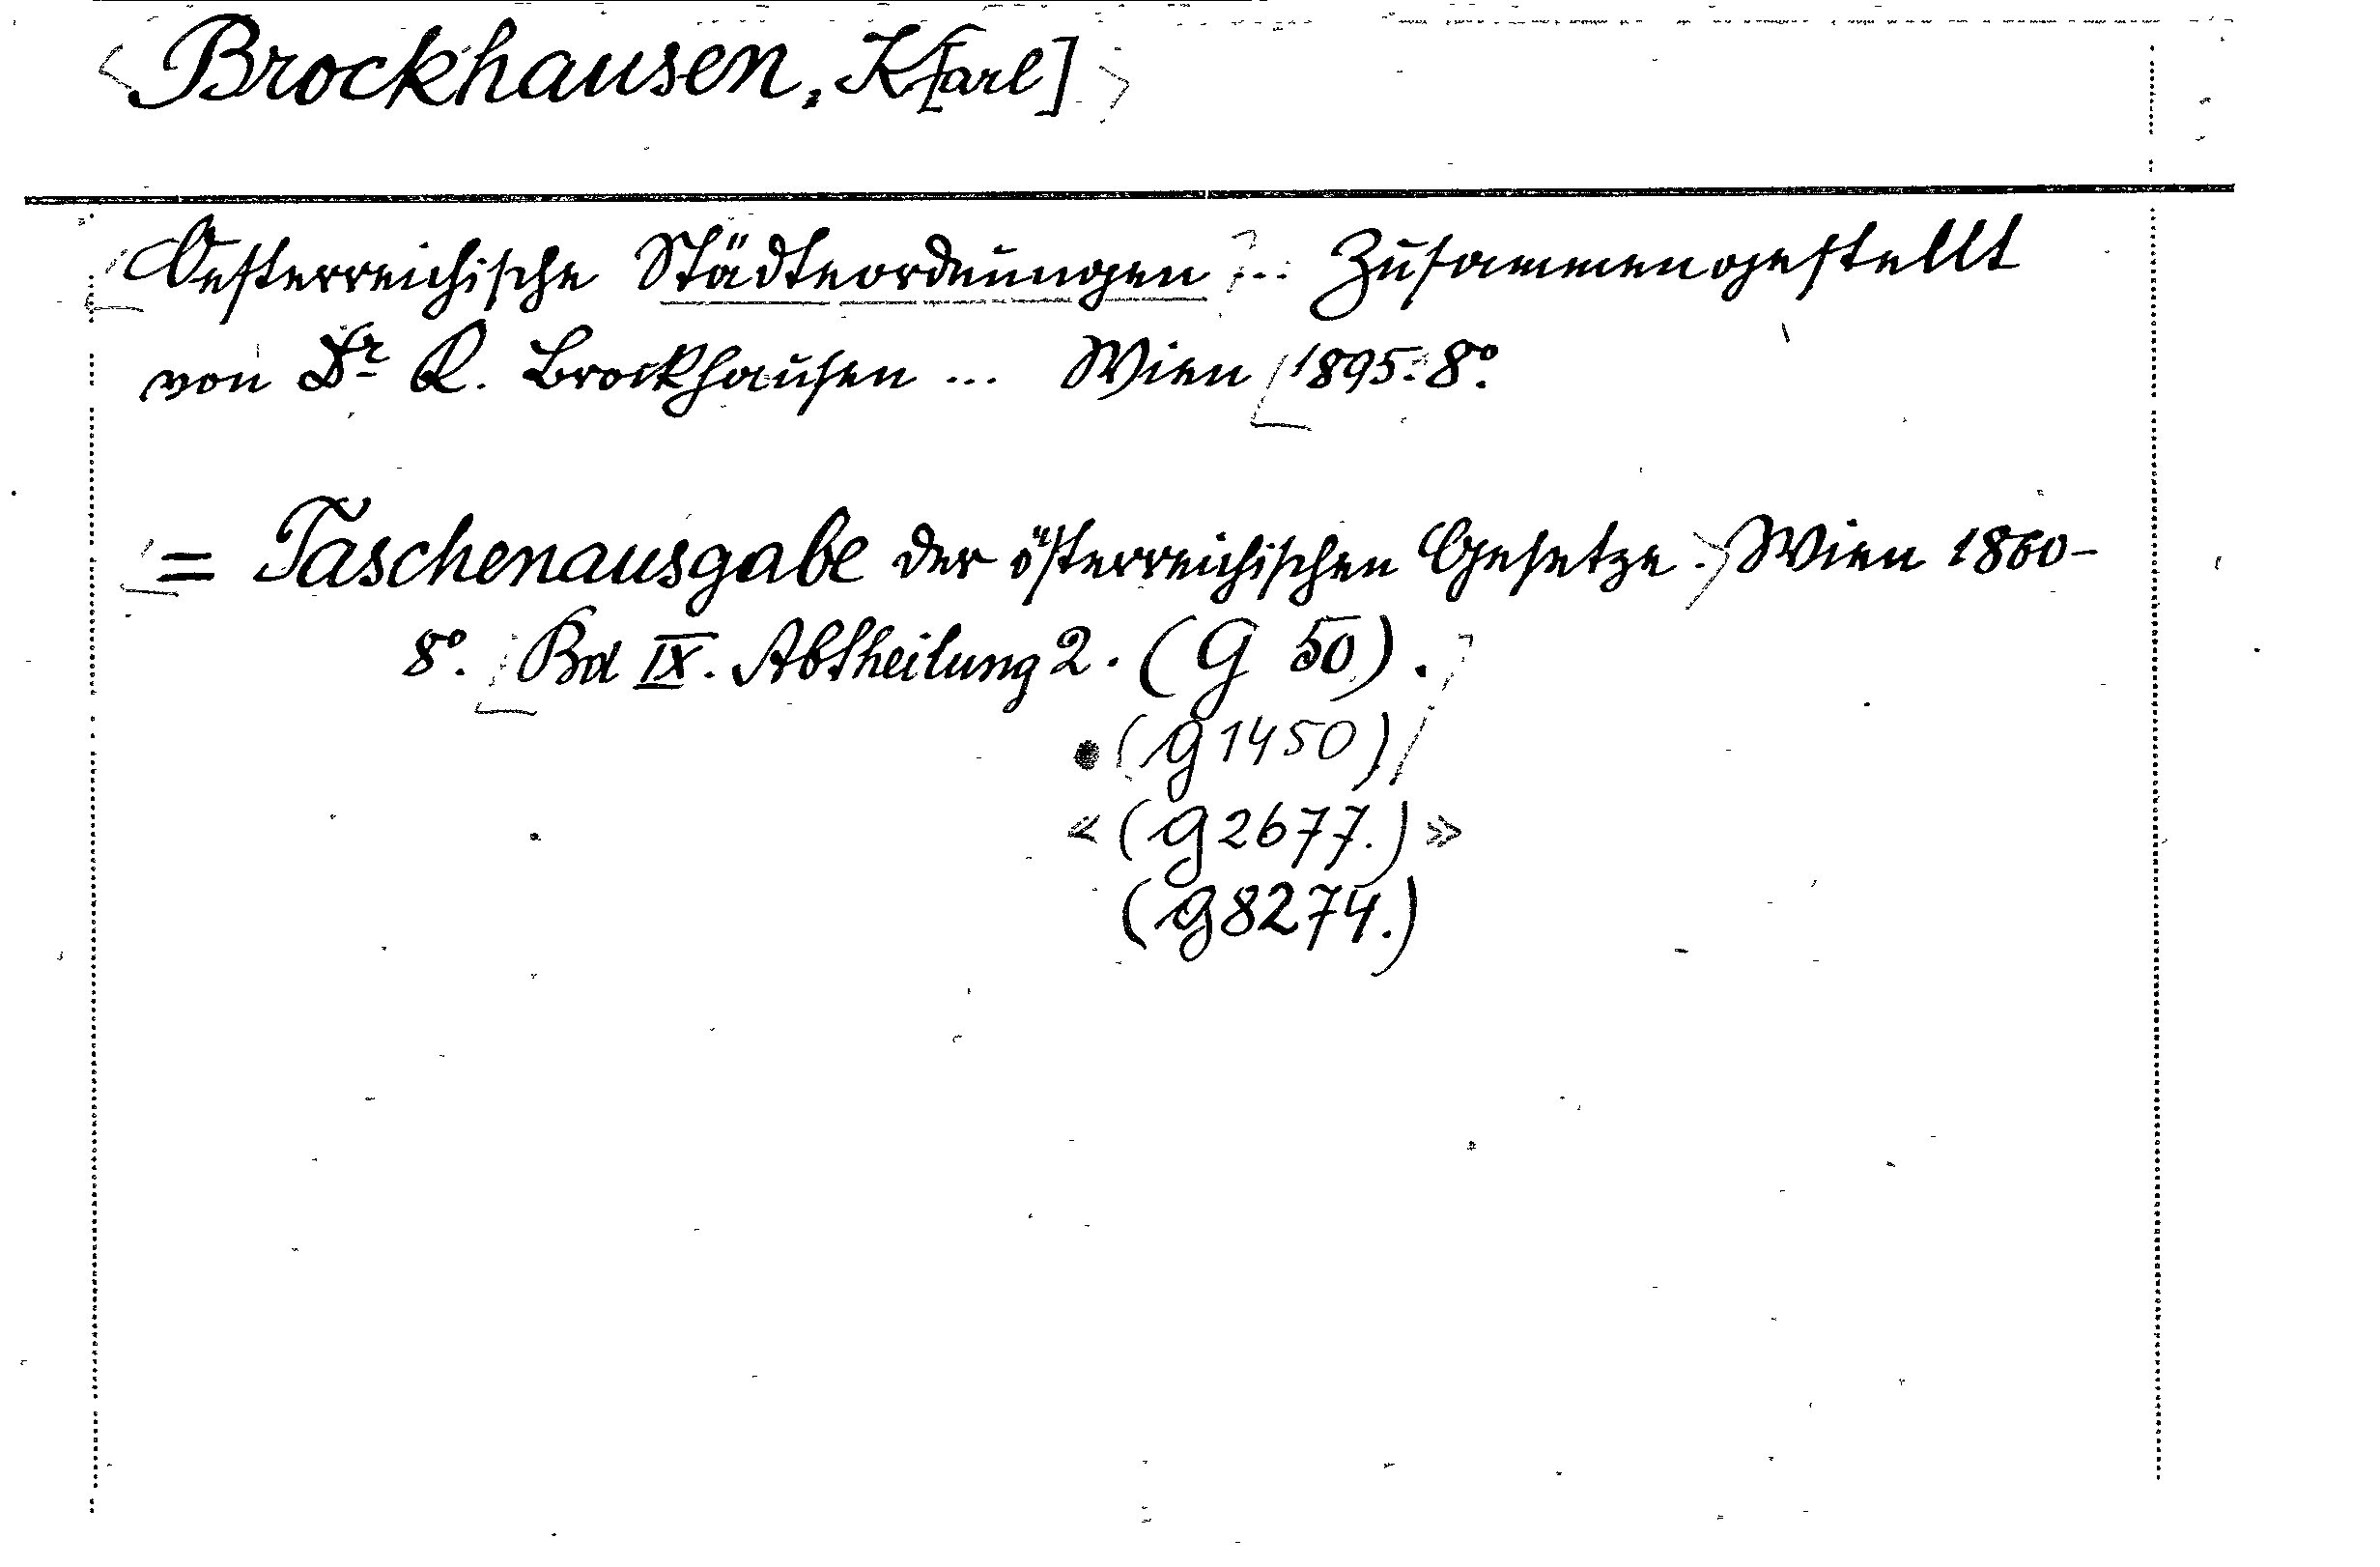 Brockhausen, K[arl]
Oesterreichische Städteordnungen ... Zusammengestellt
von Dr K. Brockhausen ... Wien 1895. 8º.
= Taschenausgabe der österreichischen Gesetze. Wien 1860-
8º. Bd IX. Abtheilung 2. (G 50).
(G 1450)
«(G 2677.)»
(G 8274.)